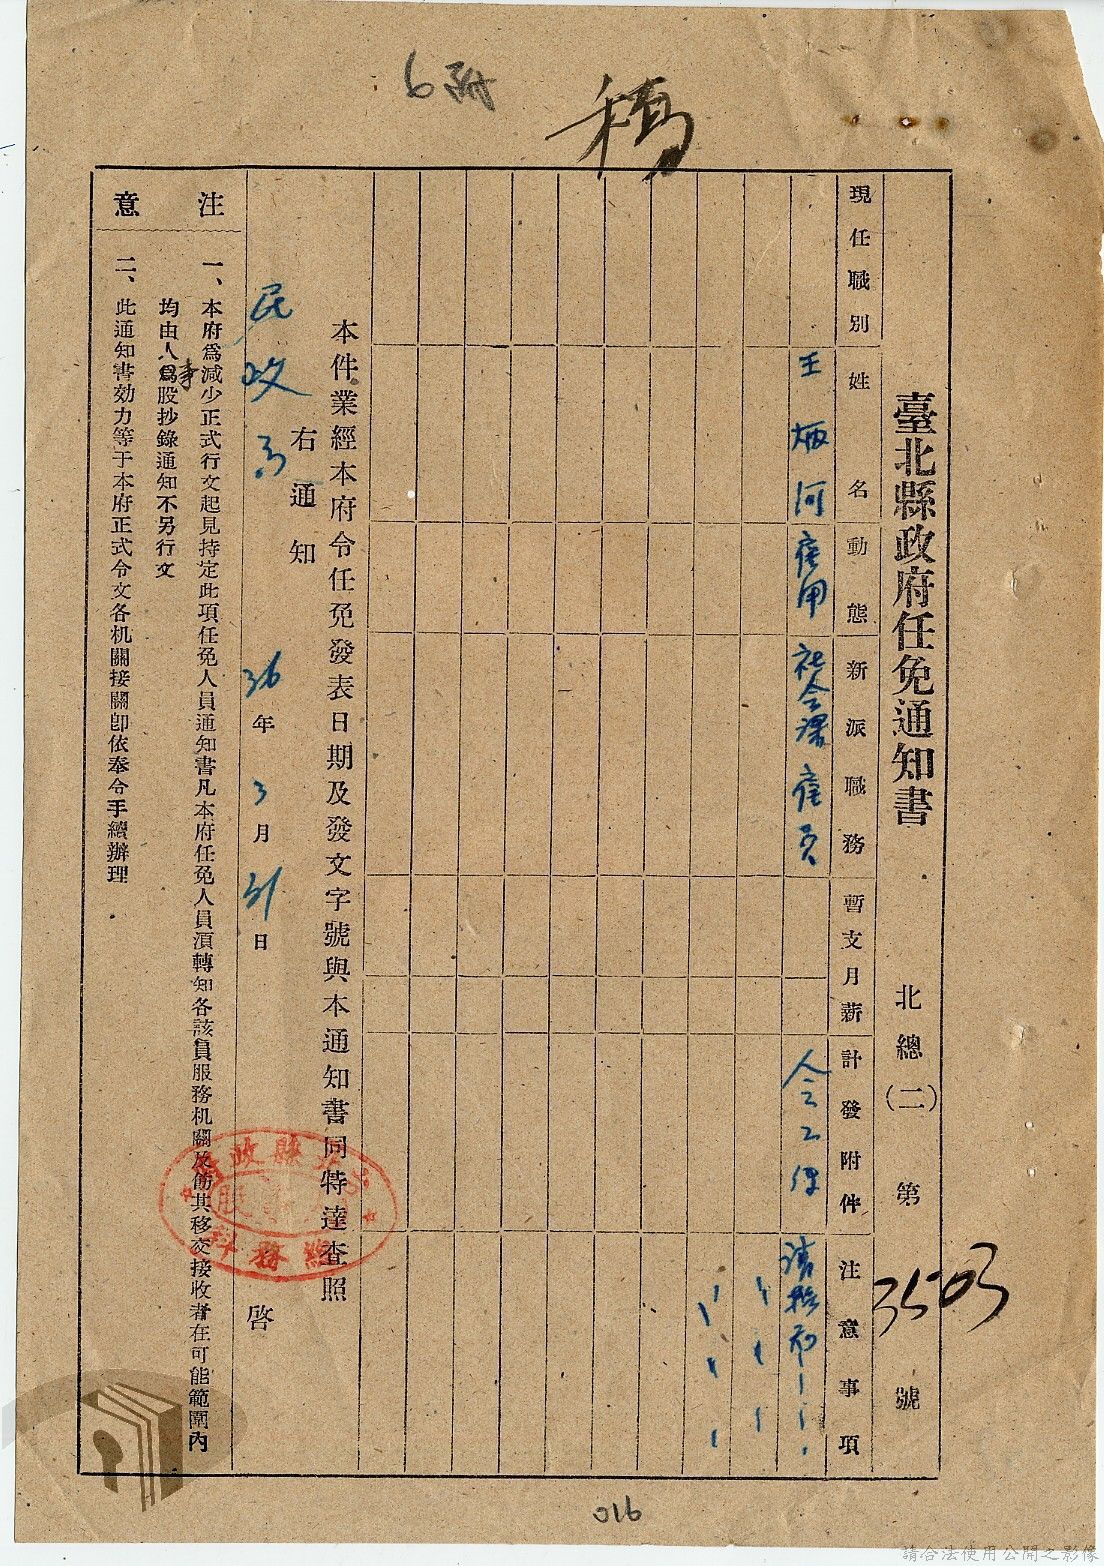 6附
稿
臺北縣政府任免通知書
北總(二)第3503號
現任職別
姓名
動態
新派職務
暫支月薪
計發附件
注意事項
王炳河
雇用
社會課雇員
令乙份
本件業經本府令任免發表日期及發文字號與本通知書同特達查照
右通知
民政局
36年3月31日
啓
注意
一、本府為減少正式行文起見持定此項任免人員通知書凡本府任免人員湏轉知各該員服務机關及飭其移交接收者在可能範圍內
均由人事股抄錄通知不另行文
二、此通知書効力等于本府正式令文各机關接關卽依奉令手續辦理
總務科
016
請合法使用公開之影像